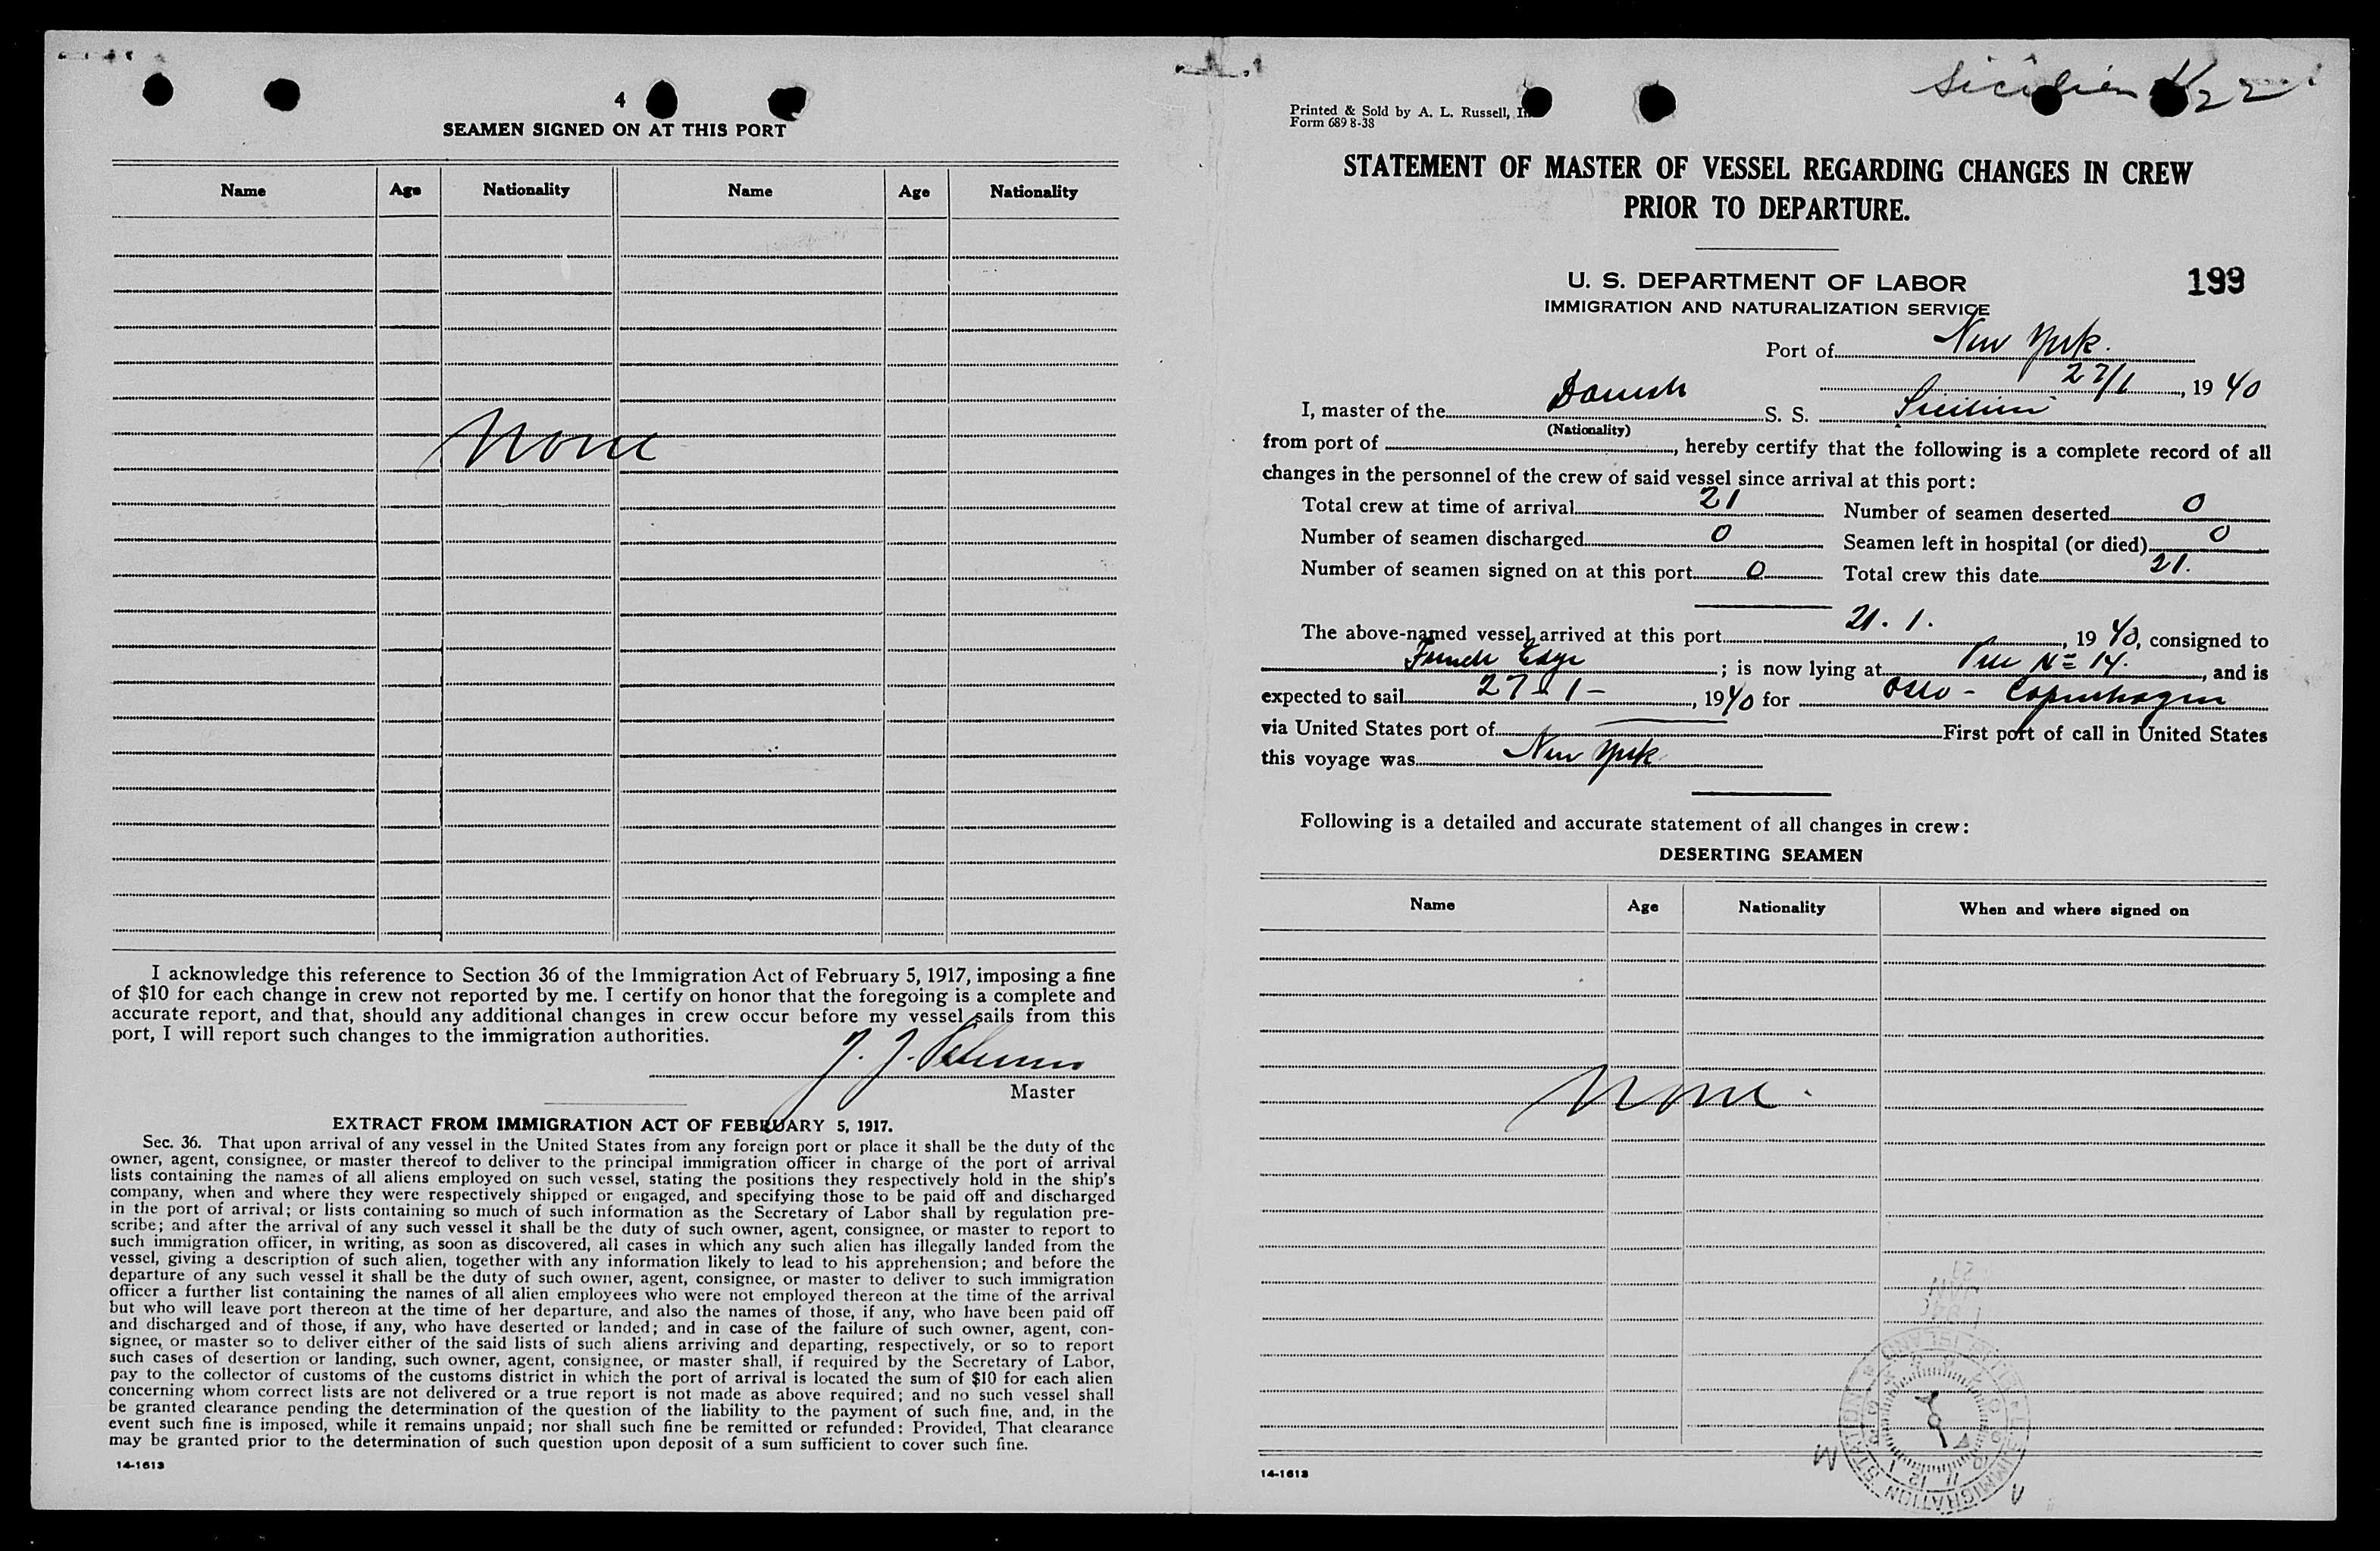 4
SEAMEN SIGNED ON AT THIS PORT
Name Age Nationality Name Age Nationality
None
I acknowledge this reference to Section 36 of the Immigration Act of February 5, 1917, imposing a fine
of $10 for each change in crew not reported by me. I certify on honor that the foregoing is a complete and
accurate report, and that, should any additional changes in crew occur before my vessel sails from this
port, I will report such changes to the immigration authorities.
J. J.
Master
EXTRACT FROM IMMIGRATION ACT OF FEBRUARY 5, 1917.
Sec. 36. That upon arrival of any vessel in the United States from any foreign port or place it shall be the duty of the
owner, agent, consignee, or master thereof to deliver to the principal immigration officer in charge of the port of arrival
lists containing the names of all aliens employed on such vessel, stating the positions they respectively hold in the ship's
company, when and where they were respectively shipped or engaged, and specifying those to be paid off and discharged
in the port of arrival; or lists containing so much of such information as the Secretary of Labor shall by regulation pre-
scribe; and after the arrival of any such vessel it shall be the duty of such owner, agent, consignee, or master to report to
such immigration officer, in writing, as soon as discovered, all cases in which any such alien has illegally landed from the
vessel, giving a description of such alien, together with any information likely to lead to his apprehension; and before the
departure of any such vessel it shall be the duty of such owner, agent, consignee, or master to deliver to such immigration
officer a further list containing the names of all alien employees who were not employed thereon at the time of the arrival
but who will leave port thereon at the time of her departure, and also the names of those, if any, who have been paid off
and discharged and of those, if any, who have deserted or landed; and in case of the failure of such owner, agent, con-
signee, or master so to deliver either of the said lists of such aliens arriving and departing, respectively, or so to report
such cases of desertion or landing, such owner, agent, consignee, or master shall, if required by the Secretary of Labor,
pay to the collector of customs of the customs district in which the port of arrival is located the sum of $10 for each alien
concerning whom correct lists are not delivered or a true report is not made as above required; and no such vessel shall
be granted clearance pending the determination of the question of the liability to the payment of such fine, and, in the
event such fine is imposed, while it remains unpaid; nor shall such fine be remitted or refunded: Provided, That clearance
may be granted prior to the determination of such question upon deposit of a sum sufficient to cover such fine.
14-1613
Sicilien 1/22
Printed & Sold by A. L. Russell,
Form 689 8-38
STATEMENT OF MASTER OF VESSEL REGARDING CHANGES IN CREW
PRIOR TO DEPARTURE.
U. S. DEPARTMENT OF LABOR
199
IMMIGRATION AND NATURALIZATION SERVICE
Port of New York.
27/1, 19 40
I, master of the Danish S. S. Sicilien
(Nationality)
from port of , hereby certify that the following is a complete record of all
changes in the personnel of the crew of said vessel since arrival at this port:
Total crew at time of arrival 21 Number of seamen deserted 0
Number of seamen discharged 0 Seamen left in hospital (or died) 0
Number of seamen signed on at this port 0 Total crew this date 21.
The above-named vessel arrived at this port 21. 1. , 19 40, consigned to
Funch Edye ; is now lying at Pier No 14. , and is
expected to sail 27-1- , 1940 for Oslo - Copenhagen
via United States port of First port of call in United States
this voyage was New York
Following is a detailed and accurate statement of all changes in crew:
DESERTING SEAMEN
Name Age Nationality When and where signed on
None.
ELLIS ISLAND
IMMIGRATION STATION
14-1613